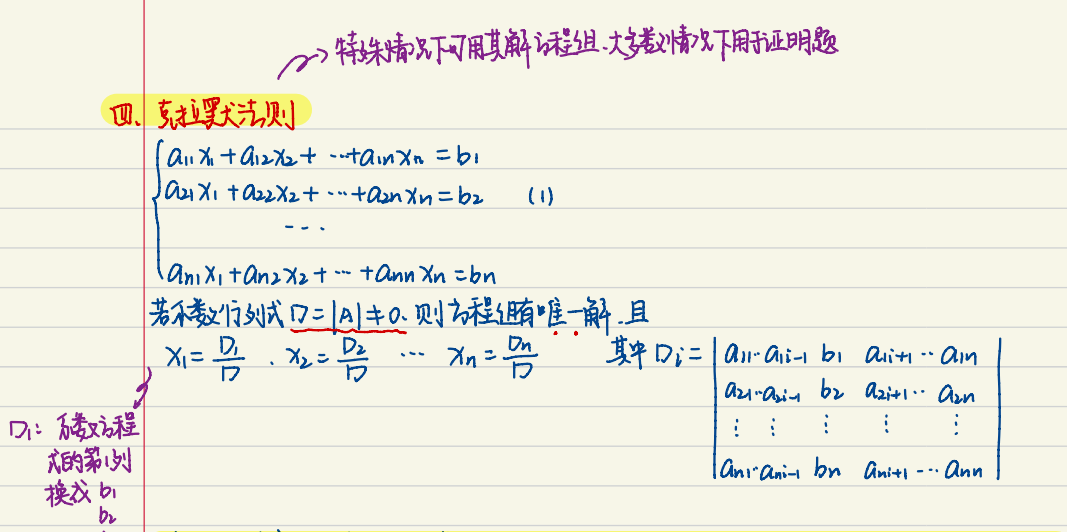 特殊情况下可用其解方程组、大多数情况下用于证明题
四、克拉默法则
a₁₁x₁+a₁₂x₂+ ⋯+a₁ₙxₙ=b₁
a₂₁x₁+a₂₂x₂+⋯+a₂ₙxₙ=b₂ (1)
⋯
aₙ₁x₁+aₙ₂x₂+⋯+aₙₙxₙ=bₙ
若系数行列式D=|A|≠0、则方程组有唯一解、且
x₁=D₁/D、x₂=D₂/D ⋯ xₙ=Dₙ/D 其中Dᵢ=
a₁₁⋯a₁ᵢ₋₁ b₁ a₁ᵢ₊₁⋯a₁ₙ
a₂₁⋯a₂ᵢ₋₁ b₂ a₂ᵢ₊₁⋯a₂ₙ
⋮ ⋮ ⋮ ⋮ ⋮
aₙ₁⋯aₙᵢ₋₁ bₙ aₙᵢ₊₁⋯aₙₙ
D₁: 系数方程
式的第1列
换成 b₁
b₂